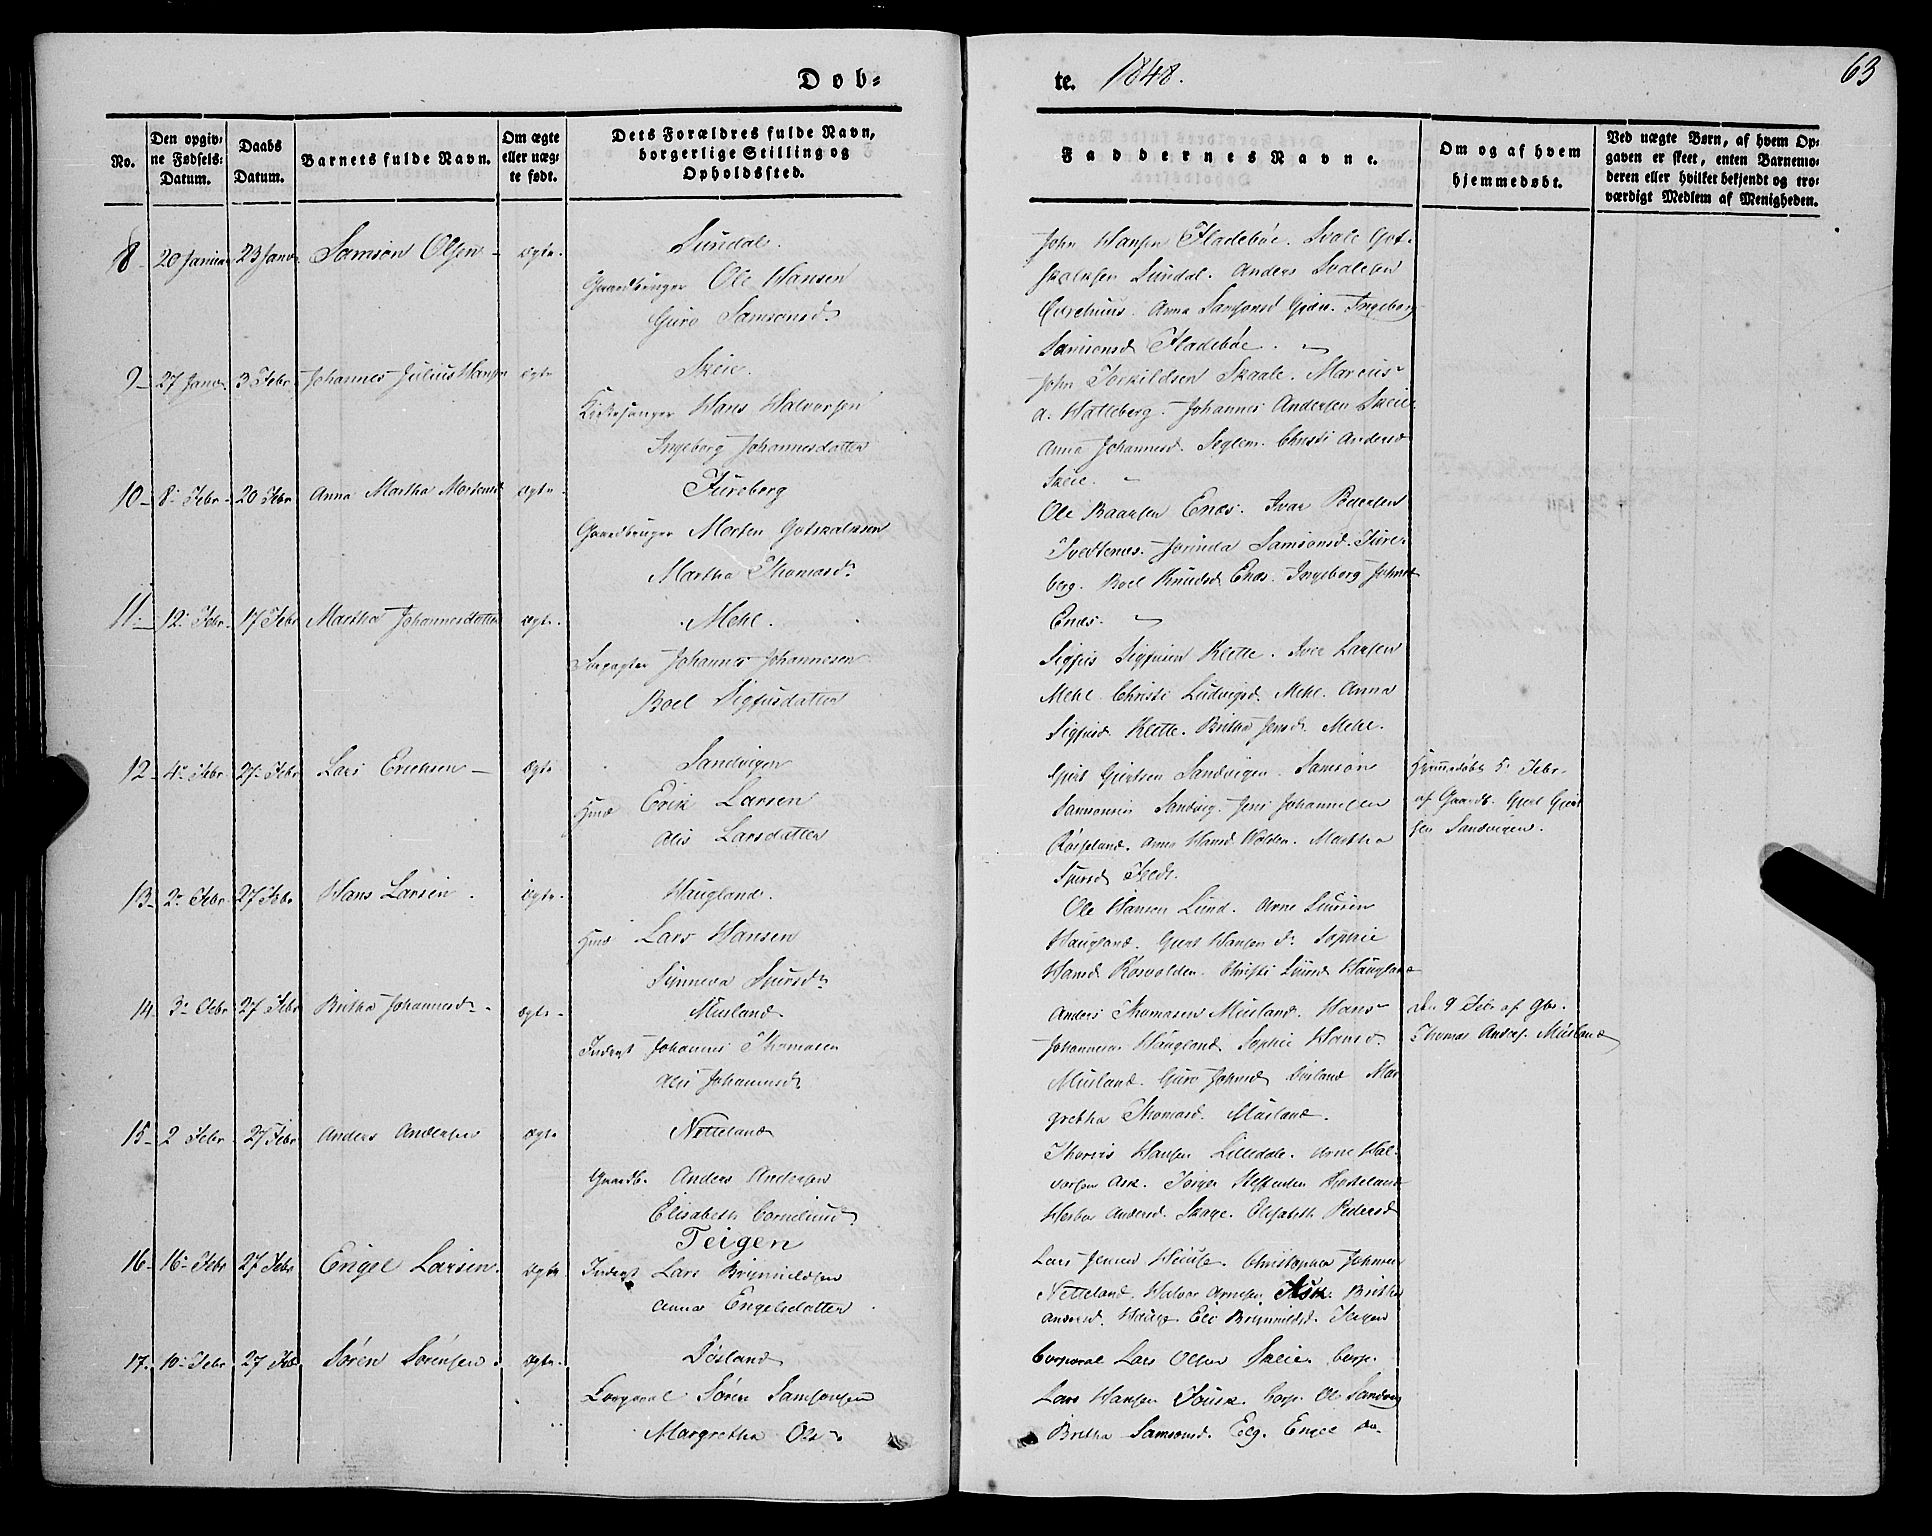 Dob-
te. 1848.
63
No.
Den opgiv-
ne Fødsels-
Datum.
Daabs
Datum.
Barnets fulde Navn.
Om ægte
eller uæg-
te født.
Dets Forældres fulde Navn,
borgerlige Stilling og
Opholdssted.
Faddernes Navne.
Om og af hvem
hjemmedøbt.
Ved uægte Børn, af hvem Op-
gaven er skeet, enten Barnemo-
deren eller hvilket bekjendt og tro-
værdigt Medlem af Menigheden.
8 20 Januar 23 Janv. Samson Olsen ægte.
Sundal.
Gaardbruger Ole Hansen
Guro Samsonsd.
John Hansen Fladebøe. Svale Got-
skalksen Sundal. Anders Svalesen
Anna Samsonsd Ingeborg
Samsonsd Fladebøe.
9 27 Janv. 3 Febr. Johannes Julius Hansen ægte
Skeie.
Kirkesanger Hans Halvorsen
Ingeborg Johannesdatter
John Torkildsen Skaale. Marcus
a. Hatteberg. Johannes Andersen Skeie.
Anna Johannesd. Seglem. Christi Andersd
Skeie.
10 8 Febr. 20 Febr. Anna Martha Mortensd ægte
Fureberg
Gaardbruger Morten Gotskalksen
Martha Thomasd.
Ole Baarsen Enæs. Ivar Pedersen
Tvedtenæs. Jorinda Samsonsd. Fure-
berg. Boel Knudsd Enæs. Ingeborg Johnsd
Enæs.
11. 12. Febr. 17 Febr Martha Johannesdatter ægte.
Mehl.
Johannes Johannesen
Boel Sigfusdatter
Sigfus Sigfusen Klette. Iver Larsen
Mehl. Christi Ludvigsd. Mehl. Anna
Sigfusd. Klette. Britha Jensd. Mehl.
12 4 Febr. 27 Febr Lars Ericksen ægte
Sandvigen
Hmd Erik Larsen
Alis Larsdatter
Giert Giertsen Sandvigen. Samson
Samsonsen Sandvig. Jens Johannesen
Røsseland. Anna Hansd Wolden. Martha
Sjursd Tvedt.
Hjemmedøbt 5 Febr.
af Gaardb. Giert Giert
sen Sandvigen.
13 2 Febr 27 Febr Hans Larsen. ægte.
Haugland.
Hmd Lars Hansen
Synneva Sjursd
Ole Hansen Lund. Arne Larsen
Haugland. Giert Hansen do. Sophie
Hansd. Christi Haugland
14 3 Febr 27 Febr Britha Johannesd. ægte
Musland
Inderst Johannes Thomasen
Alis Johannesd
Anders Thomasen Musland. Hans
Johannesen Haugland Sophie Hansd.
Musland. Guro Johnsd Mar
gretha Thomasd. Musland.
den 9 Febr af Gbr.
Thomas Anders. Musland
15 2 Febr. 27 Febr Anders Andersen ægte
Netteland
Gaardb. Anders Andersen
Elisabeth Corneliusd
Hansen Lilledale. Arne Hal-
vorsen Ask. Steffensen
Andersd. Skage. Elisabeth Pedersd
16 16 Febr 27 Febr Engel Larsen. ægte
Teigen
Inderst Lars Brynnildsen
Anna Engelsdatter
Lars Jensen Hauge. Christopher Johnsen
Netteland. Halvor Arnesen Ask. Britha
Andersd. Hauge Eli Brynnildsd. Teigen
17. 10 Febr. 27 Feb. Søren Sørensen. ægte.
Døsland
Corporal Søren Samsonsen
Margretha Olsd
Corporal Lars Olsen Skeie. Corp.
Lars Hansen Corp. Ol Sandvig
Britha Samsonsd. Eeg. Engel